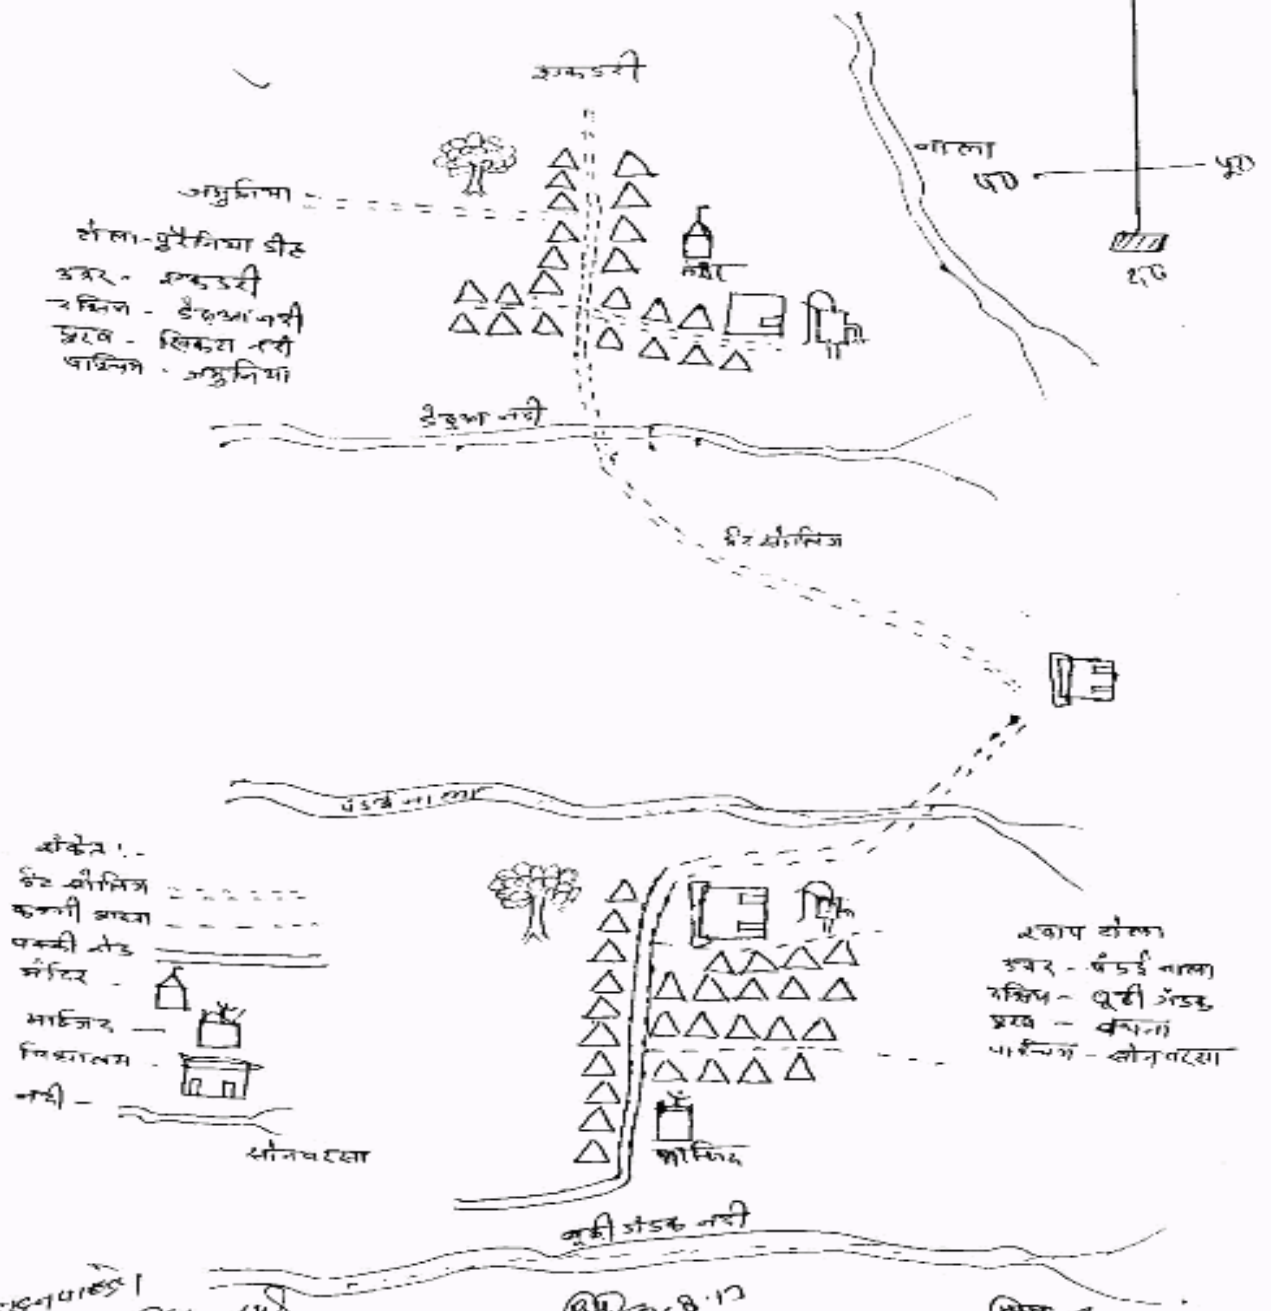 एकडरी
नाला
पू०
प०
द०
जमुनिया
टोला-पुरैनिया डीह
उत्तर - एकडरी
दक्षिण - ढेकुआ नदी
पूरब - सिकटा नदी
पश्चिम - जमुनिया
ढेकुआ नदी
ईंट सोलिंग
पंडई नाला
संकेत :-
ईंट सोलिंग
कच्ची रास्ता
पक्की रोड
मंदिर -
मस्जिद -
विद्यालय -
नदी -
सोनबरसा
टोला
उत्तर - पंडई नाला
दक्षिण - बूढ़ी गंडक
पूरब -
पश्चिम - सोनबरसा
मस्जिद
बूढ़ी गंडक नदी